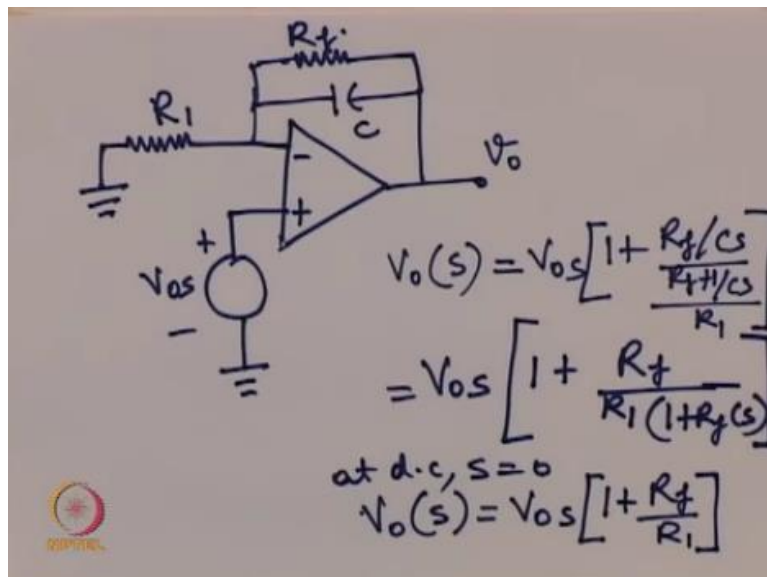 Rf.
C
R1
-
+
vo
+
Vos
-
Vo(s) = Vos[1 + Rf/Cs / Rf+1/Cs / R1]
= Vos [1 + Rf / R1(1+RfCs)]
at d.c, s=0
Vo(s) = Vos[1 + Rf/R1]
NPTEL